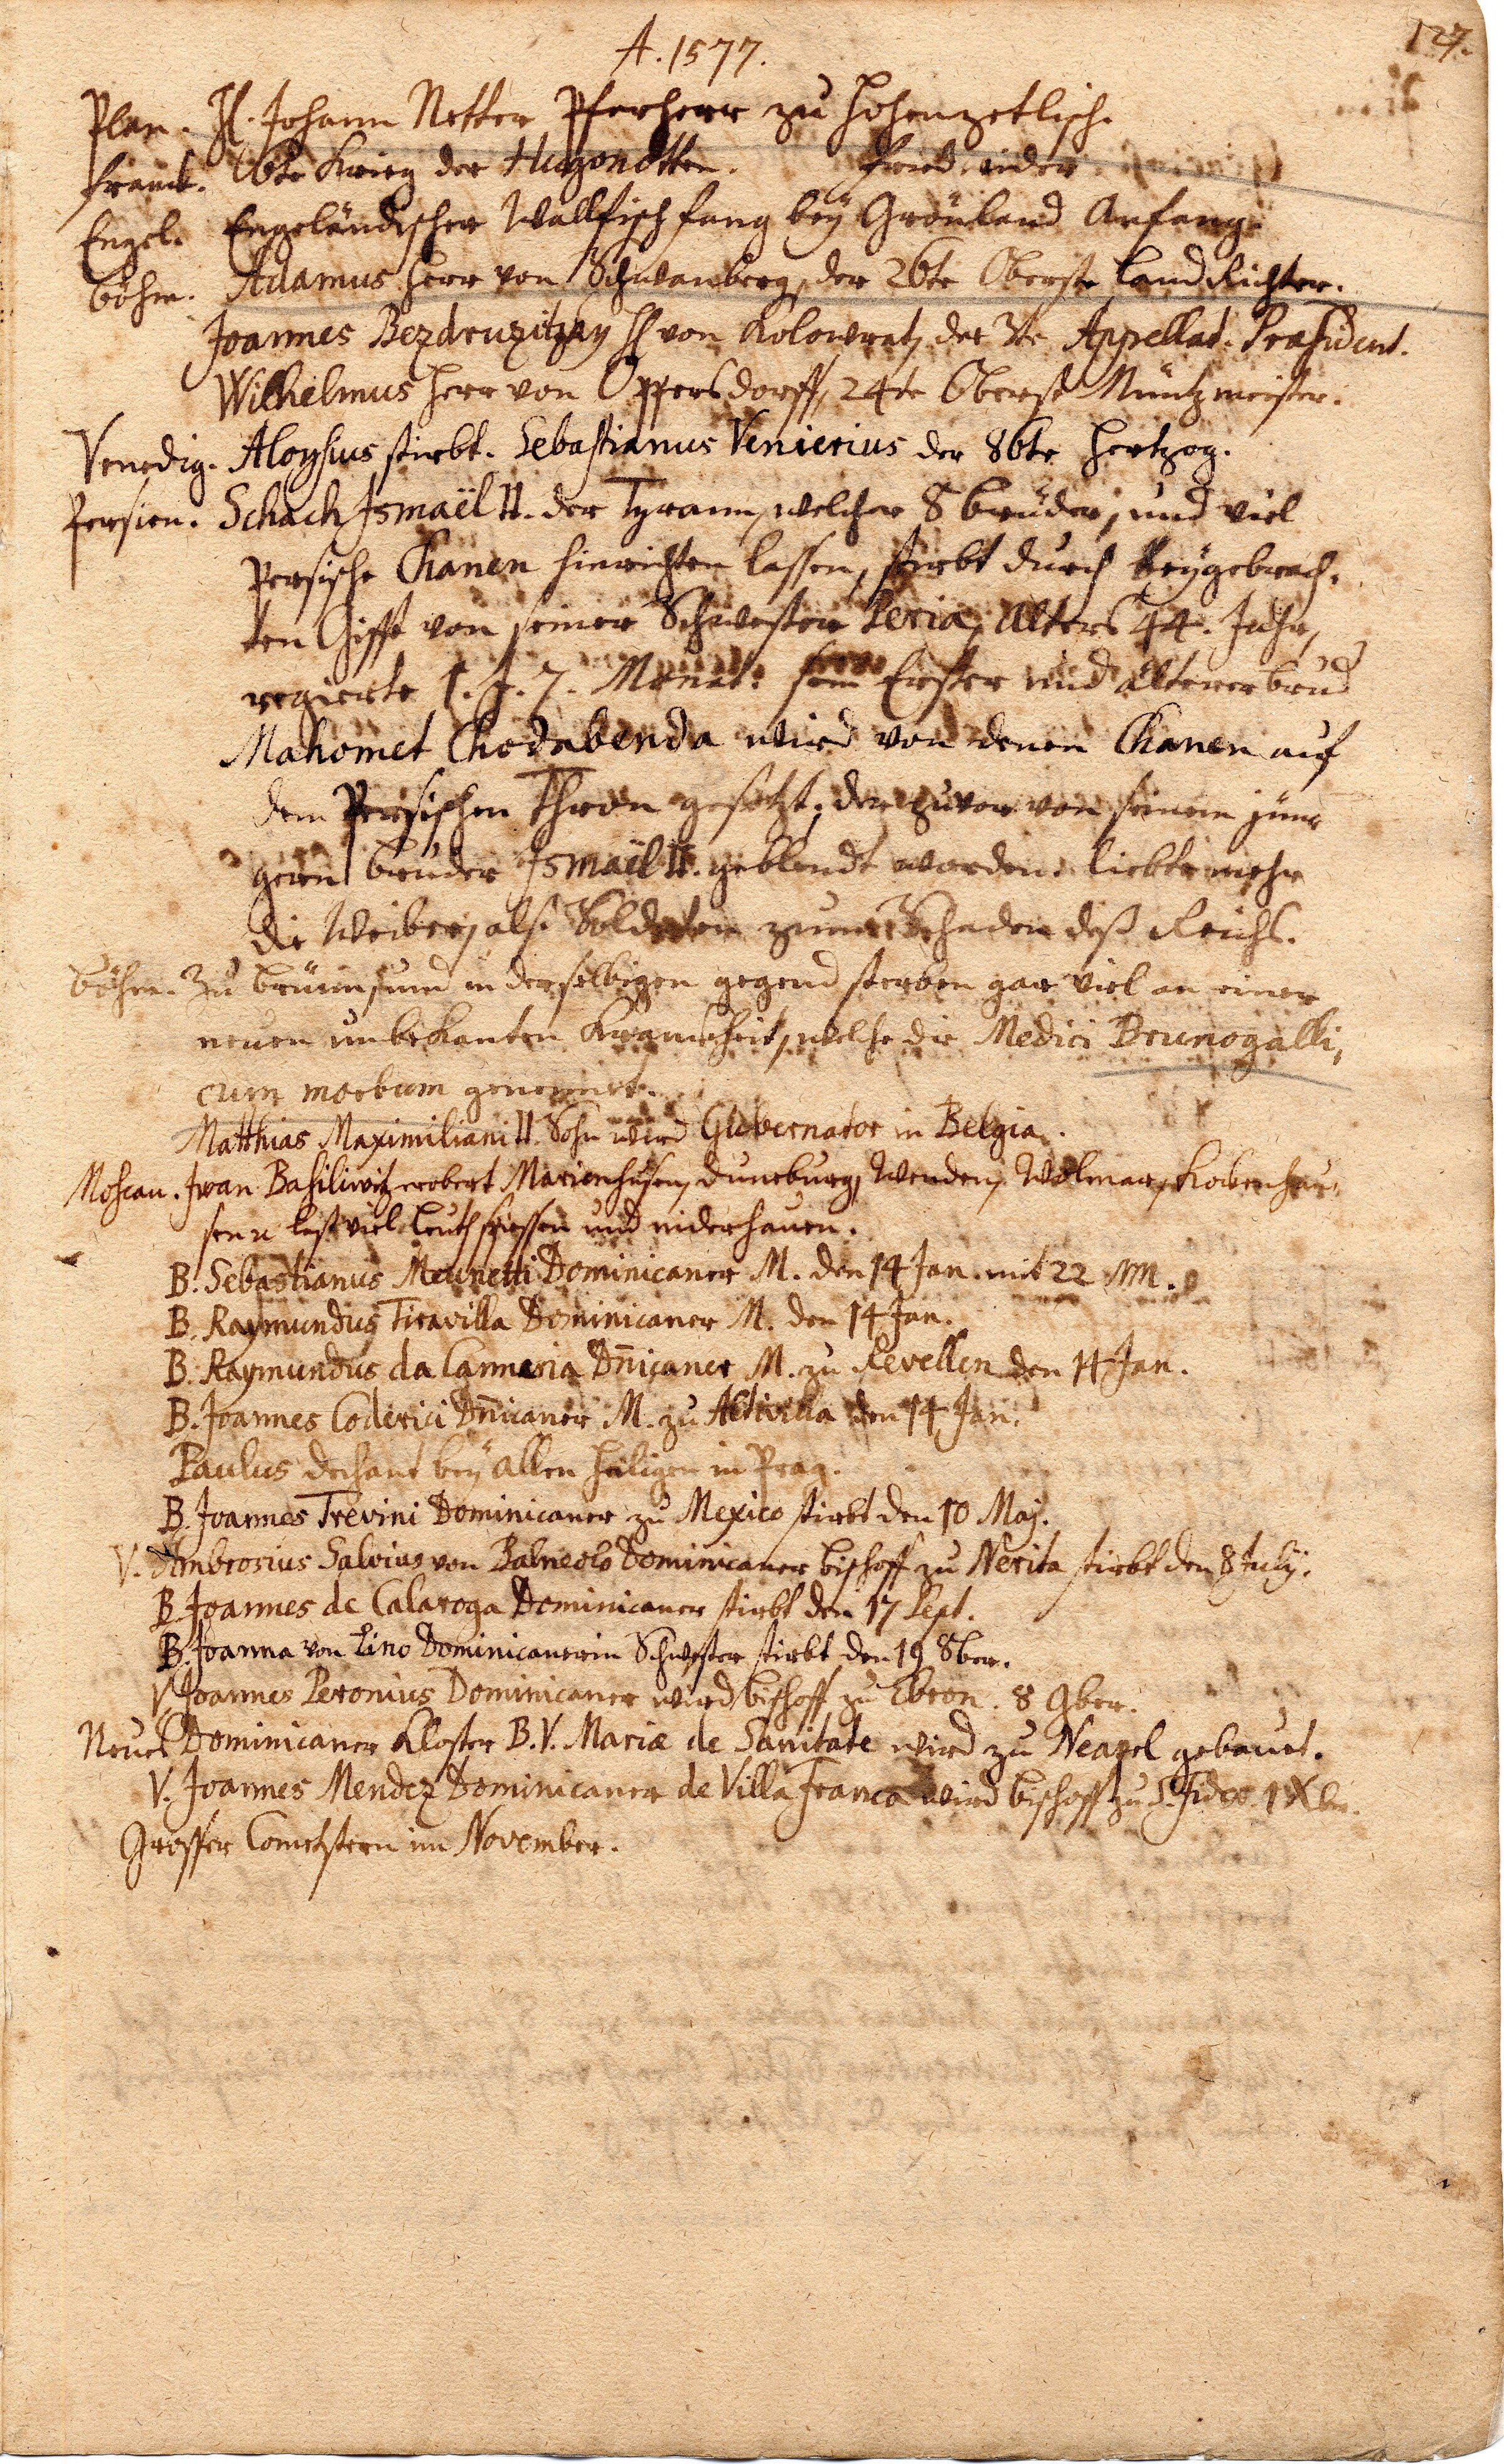 127.
A. 1577.
Plan. H. Johann Netter Pfarherr zu Hohenzetlisch.
Franck. 6te Krieg der Hugonotten. Fried wider
Engel. Engeländischer Wallfischfang beÿ Grönland Anfang.
Böhm. Adamus Herr von Schwanberg, der 26te Oberste Land Richter.
Joannes Bezdruzitzky H von Kolowrat, der 3te Appellat. Præsident.
Wilhelmus Herr von Oppersdorff, 24te Oberst Müntzmeister.
Venedig. Aloysius stirbt. Sebastianus Venierius der 86te Hertzog.
Persien. Schach Ismaël II. der Tyrann, welcher 8 brüder, und viel
Persische Chanen hinrichten lassen, stirbt durch beÿgebrach-
ten Gifft von seiner Schwester Peria, Alters 44. Jahr,
regierte 1. J. 7. Monat. sein Erster und älterer brud
Mahomet Chodabenda wird von denen Chanen auf
dem Persischen Thron gesetzt, der zuvor von seinem jün-
gern bruder Ismaël II. geblendt worden. liebte mehr
die Weiber, als Soldaten zum Schaden deß Reichs.
Böhm. Zu Brünn und in derselbigen gegend sterben gar viel an einer
neuen unbekanten Kranckheit, welche die Medici Brunogalli,
cum morbum genennet.
Matthias Maximiliani II. Sohn wird Gubernator in Belgia.
Moscau. Iwan Basiliwitz erobert Marienhusen, Duneburg, Wenden, Wolmar, Kockenhau-
sen u last viel Leuth spiessen und niderhauen.
B. Sebastianus Meunetti Dominicaner M. den 14 Jan. mit 22 MM.
B. Raymundus Tiravilla Dominicaner M. den 14 Jan.
B. Raymundus da Cannaria Dn̄icaner M. zu Revellen den 14 Jan.
B. Joannes Coderici Dn̄icaner M. zu Altivilla den 14 Jan.
Paulus Dechant beÿ Allen Heiligen in Prag.
B. Joannes Trevini Dominicaner zu Mexico stirbt den 10 Maj.
V. Ambrosius Salvius von Balneolo Dominicaner Bischoff zu Nerita stirbt den 8 Julÿ.
B. Joannes de Calaroga Dominicaner stirbt den 17 Sept.
B. Joanna von Lino Dominicanerin Schwester stirbt den 19 8ber.
V. Joannes Peronius Dominicaner wird Bischoff zu Ebron. 8 9ber.
Neues Dominicaner Kloster B. V. Mariæ de Sanitate wird zu Neapel gebauet.
V. Joannes Mendez Dominicaner de Villa Franca wird Bischoff zu S. Fidee. 1 Xber.
Grosser Cometstern im November.